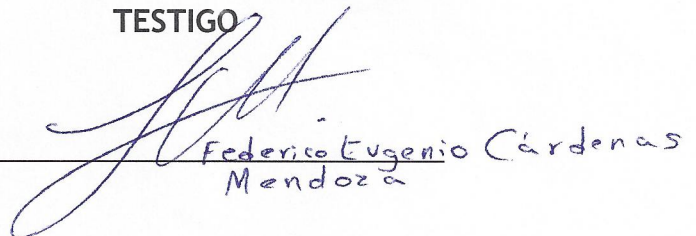 TESTIGO
Federico Eugenio Cárdenas
Mendoza